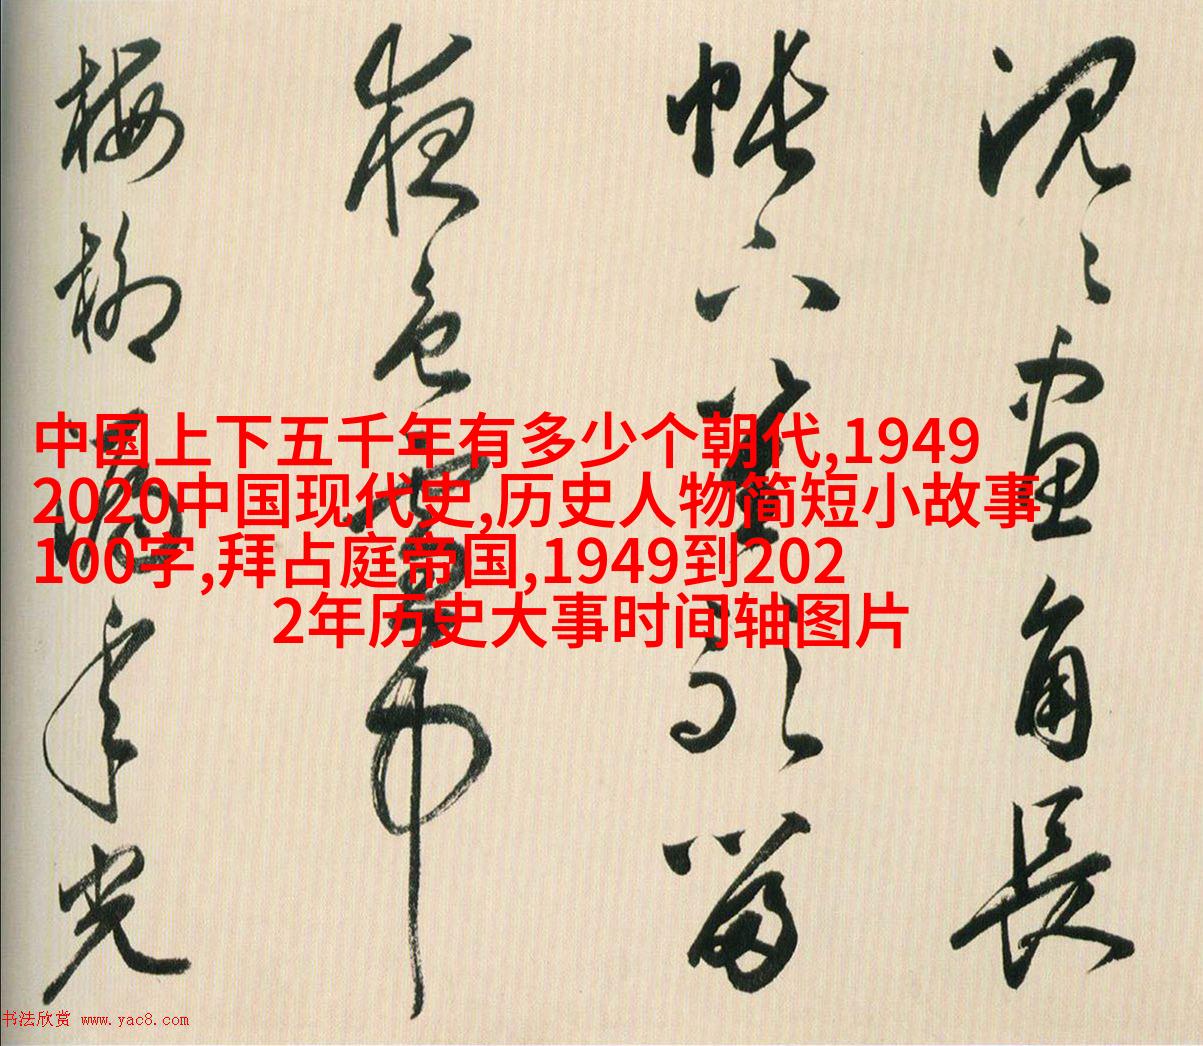 中国上下五千年有多少个朝代,1949
2020中国现代史,历史人物简短小故事
100字,拜占庭帝国,1949到202
2年历史大事时间轴图片
画角長
六 留
夜色
梅柳 年光
书法欣赏 www.yac8.com